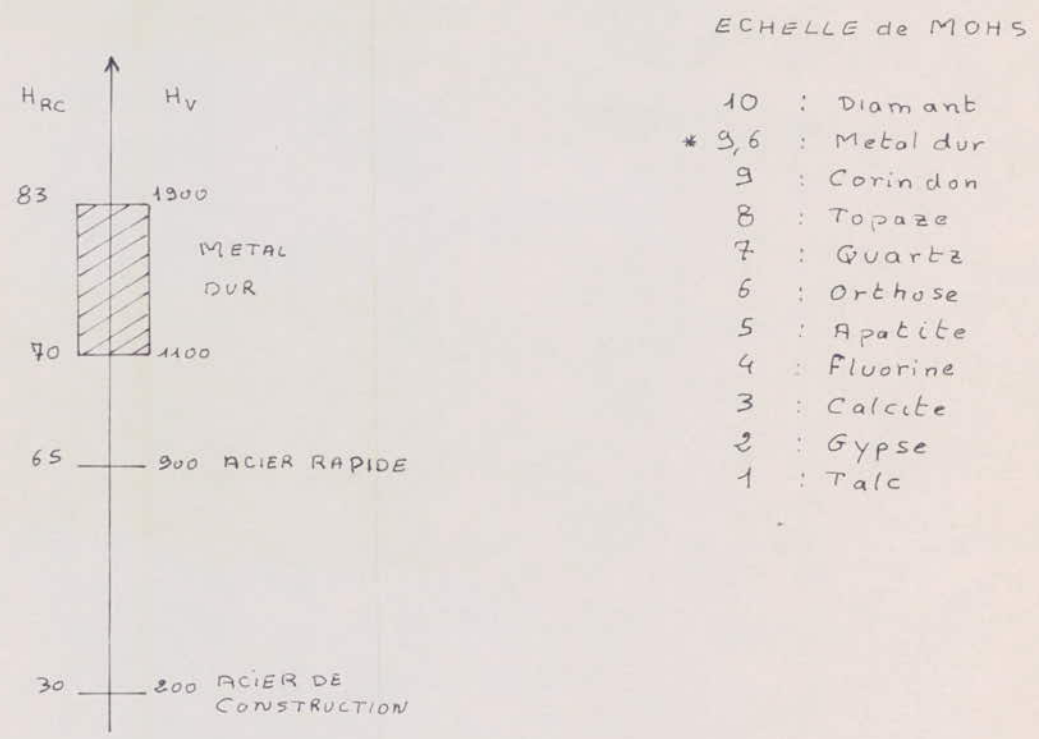 ECHELLE de MOHS
HRC HV
83 1900
METAL
DUR
70 1100
65 900 ACIER RAPIDE
30 200 ACIER DE
CONSTRUCTION
10 : Diamant
* 9,6 : Metal dur
9 : Corindon
8 : Topaze
7 : Quartz
6 : Orthose
5 : Apatite
4 : Fluorine
3 : Calcite
2 : Gypse
1 : Talc